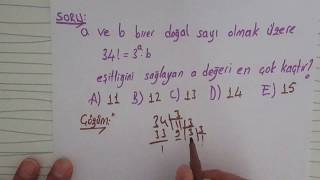 SORU:
a ve b birer doğal sayı olmak üzere
34! = 3ᵃ · b
eşitliğini sağlayan a değeri en çok kaçtır?
A) 11 B) 12 C) 13 D) 14 E) 15
Çözüm:
34 3
33 11 3
1 9 3 3